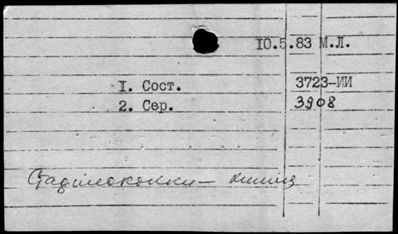 10.5.83 М.Л.
1. Сост. 3723-ИИ
2. Сер. 3908
Стафилококки —